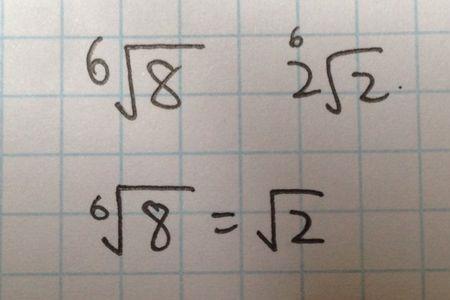 ⁶√8 ⁶2√2.
⁶√8 = √2